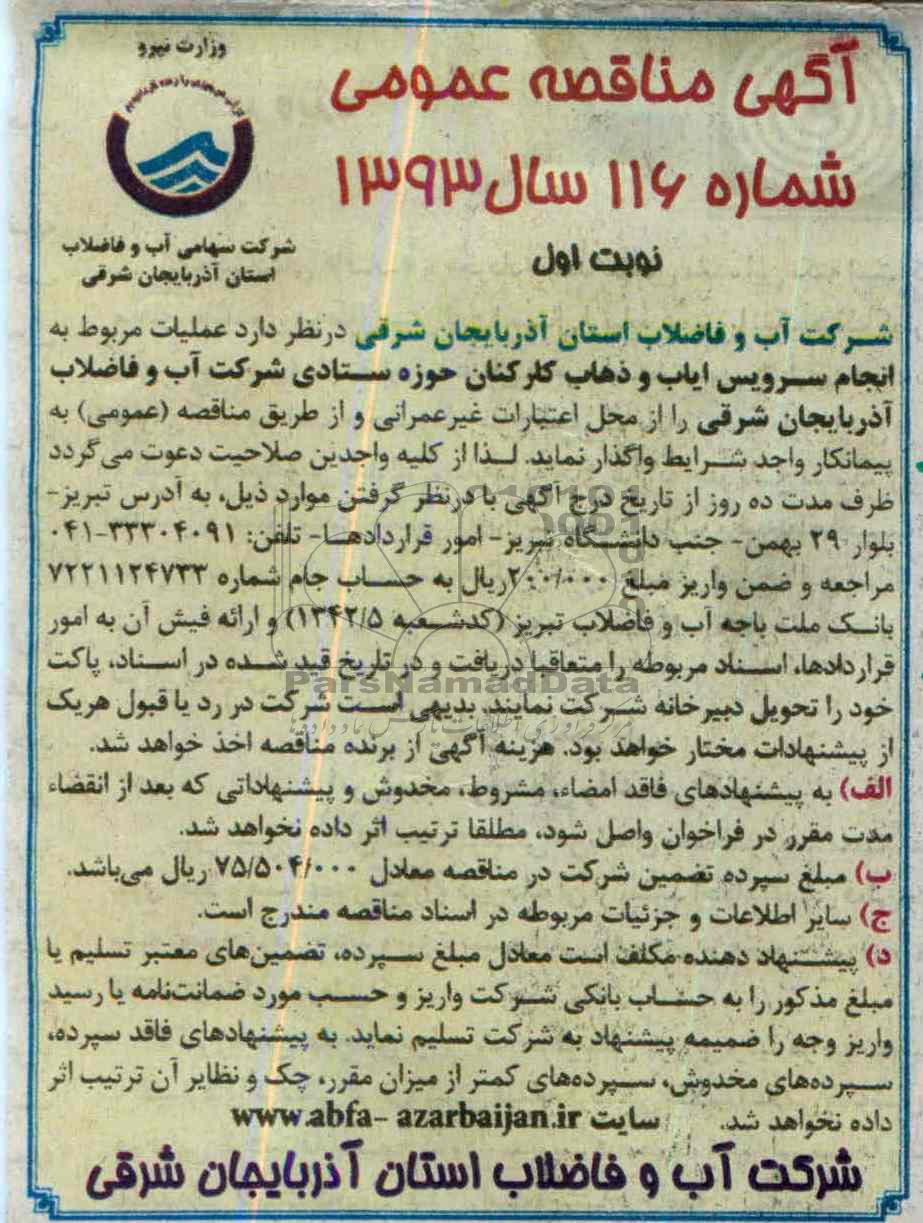 وزارت نیرو
شرکت سهامی آب و فاضلاب
استان آذربایجان شرقی
آگهی مناقصه عمومی
شماره ۱۱۶ سال ۱۳۹۳
نوبت اول
شرکت آب و فاضلاب استان آذربایجان شرقی درنظر دارد عملیات مربوط به
انجام سرویس ایاب و ذهاب کارکنان حوزه ستادی شرکت آب و فاضلاب
آذربایجان شرقی را از محل اعتبارات غیرعمرانی و از طریق مناقصه (عمومی) به
پیمانکار واجد شرایط واگذار نماید. لذا از کلیه واجدین صلاحیت دعوت می‌گردد
ظرف مدت ده روز از تاریخ درج آگهی با درنظر گرفتن موارد ذیل، به آدرس تبریز-
بلوار ۲۹ بهمن- جنب دانشگاه تبریز- امور قراردادها- تلفن: ۳۳۳۰۴۰۹۱-۰۴۱
مراجعه و ضمن واریز مبلغ ۲۰۰/۰۰۰ ریال به حساب جام شماره ۷۲۲۱۱۲۴۷۳۳
بانک ملت باجه آب و فاضلاب تبریز (کدشعبه ۱۳۴۲/۵) و ارائه فیش آن به امور
قراردادها، اسناد مربوطه را متعاقبا دریافت و در تاریخ قید شده در اسناد، پاکت
ParsNamadData
خود را تحویل دبیرخانه شرکت نمایند. بدیهی است شرکت در رد یا قبول هریک
از پیشنهادات مختار خواهد بود. هزینه آگهی از برنده مناقصه اخذ خواهد شد.
الف) به پیشنهادهای فاقد امضاء، مشروط، مخدوش و پیشنهاداتی که بعد از انقضاء
مدت مقرر در فراخوان واصل شود، مطلقا ترتیب اثر داده نخواهد شد.
ب) مبلغ سپرده تضمین شرکت در مناقصه معادل ۷۵/۵۰۴/۰۰۰ ریال می‌باشد.
ج) سایر اطلاعات و جزئیات مربوطه در اسناد مناقصه مندرج است.
د) پیشنهاد دهنده مکلف است معادل مبلغ سپرده، تضمین‌های معتبر تسلیم یا
مبلغ مذکور را به حساب بانکی شرکت واریز و حسب مورد ضمانت‌نامه یا رسید
واریز وجه را ضمیمه پیشنهاد به شرکت تسلیم نماید. به پیشنهادهای فاقد سپرده،
سپرده‌های مخدوش، سپرده‌های کمتر از میزان مقرر، چک و نظایر آن ترتیب اثر
داده نخواهد شد. سایت www.abfa- azarbaijan.ir
شرکت آب و فاضلاب استان آذربایجان شرقی